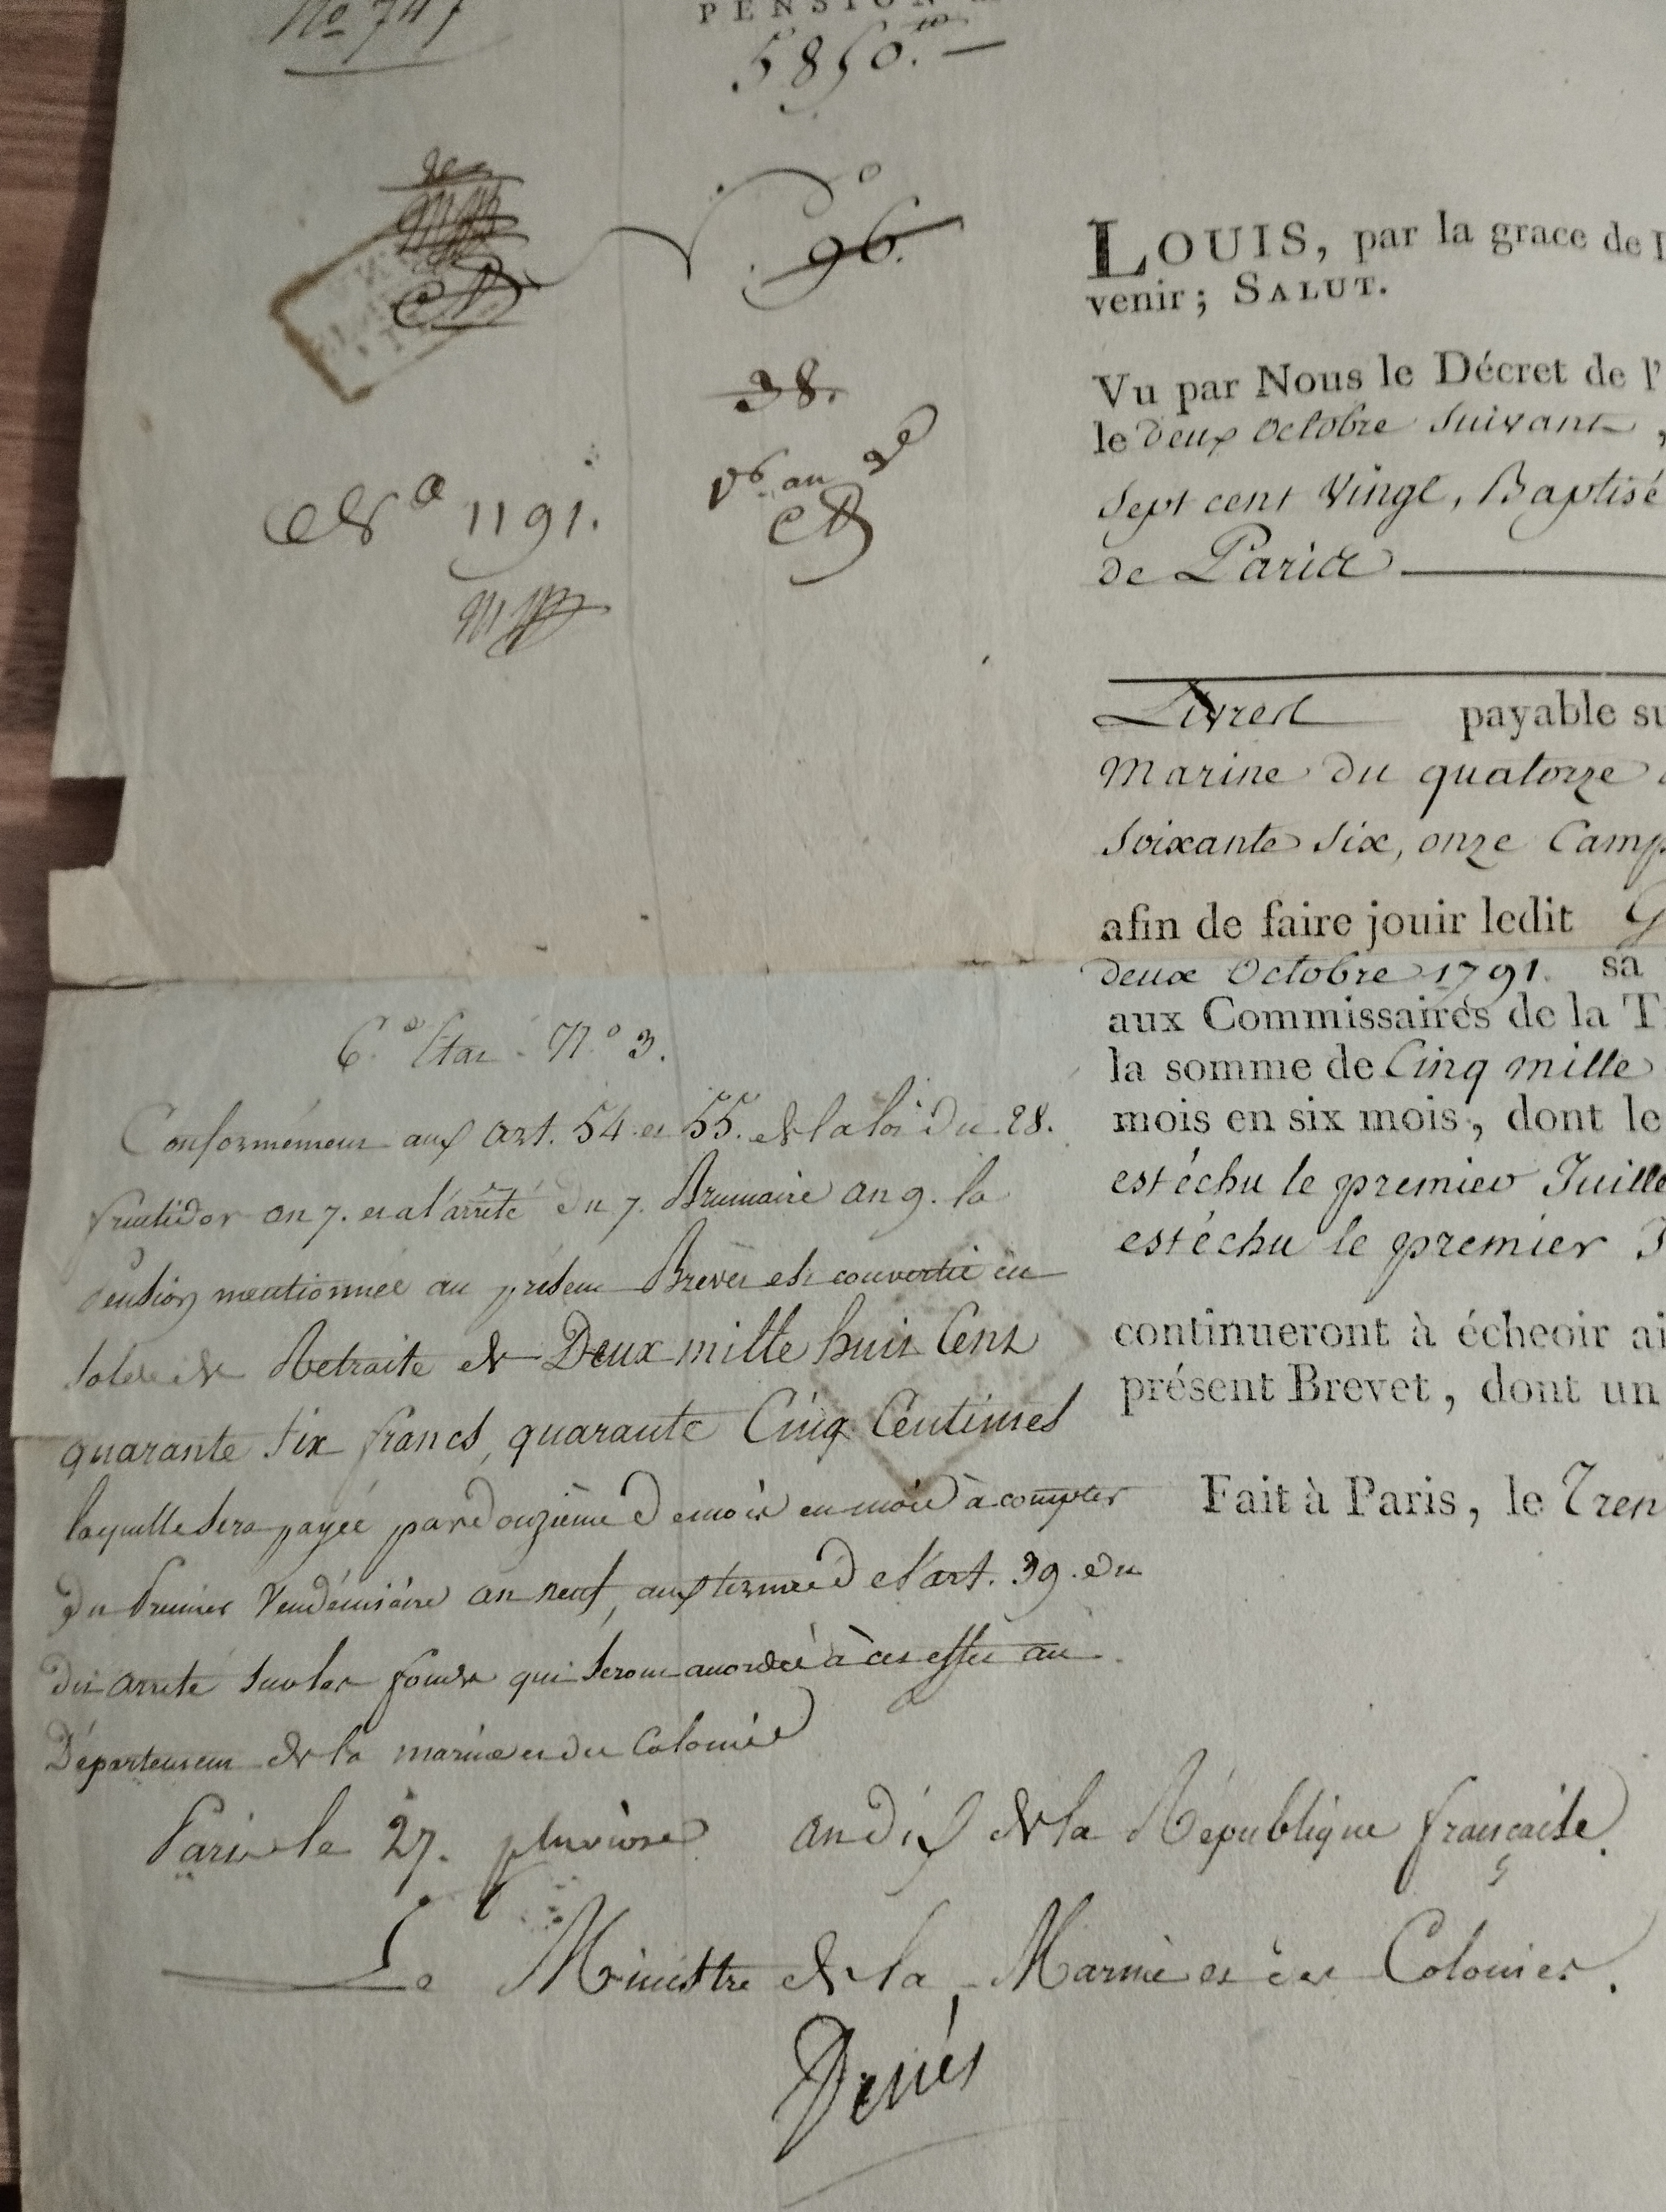 No 747
PENSION
5850.# —
96.
38.
V.6 an 2e
No 1191.
LOUIS, par la grace de
venir; SALUT.
Vu par Nous le Décret de l'
le deux Octobre Suivant,
Sept cent Vingt, Baptisé
de Paris
Livres payable su
Marine du quatorze
Soixante Six, onze Camp
afin de faire jouir ledit G
deux Octobre 1791. sa
aux Commissaires de la T
la somme de Cinq mille
mois en six mois, dont le
est échu le premier Juille
est échu le premier J
continueront à écheoir ai
présent Brevet, dont un
Fait à Paris, le Tren
6.e Etat. N.o 3.
Conformément aux art. 54 et 55. de la loi du 28.
fructidor an 7. et a l'arrêté du 7. Brumaire an 9. la
Pension mentionnée au présent Brevet est convertie en
solde de Retraite de Deux mille huit Cent
quarante Six francs, quarante Cinq Centimes
laquelle sera payée par douzième de mois en mois à compter
du Premier Vendémiaire an neuf, aux termes de l'art. 39. du
dit arrêté sur les fonds qui seront accordés à cet effet au
Département de la marine et des Colonies
Paris le 27. pluviose an dix de la République française.
Le Ministre de la Marine et des Colonies.
Decrès